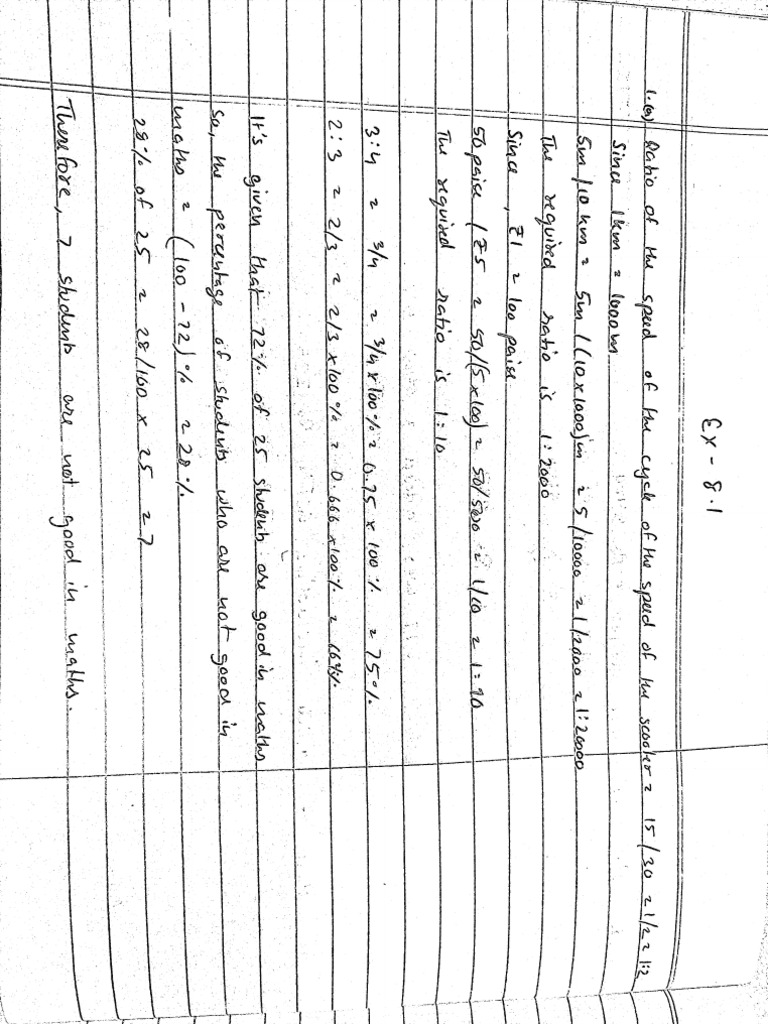 Ex - 8.1
1.(a) Ratio of the speed of the cycle of the speed of the scooter = 15/30 = 1/2 = 1:2
Since 1km = 1000m
5m/10km = 5m/(10x1000)m = 5/10000 = 1/2000 = 1:20000
The required ratio is 1:2000
Since, ₹1 = 100 paise
50 paise / ₹5 = 50/(5x100) = 50/500 = 1/10 = 1:10
The required ratio is 1:10
3:4 = 3/4 = 3/4x100% = 0.75 x 100% = 75%
2:3 = 2/3 = 2/3x100% = 0.666 x100% = 66%
It's given that 72% of 25 students are good in maths
So, the percentage of students who are not good in
maths = (100 - 72)% = 28%
28% of 25 = 28/100 x 25 = 7
Therefore, 7 students are not good in maths.